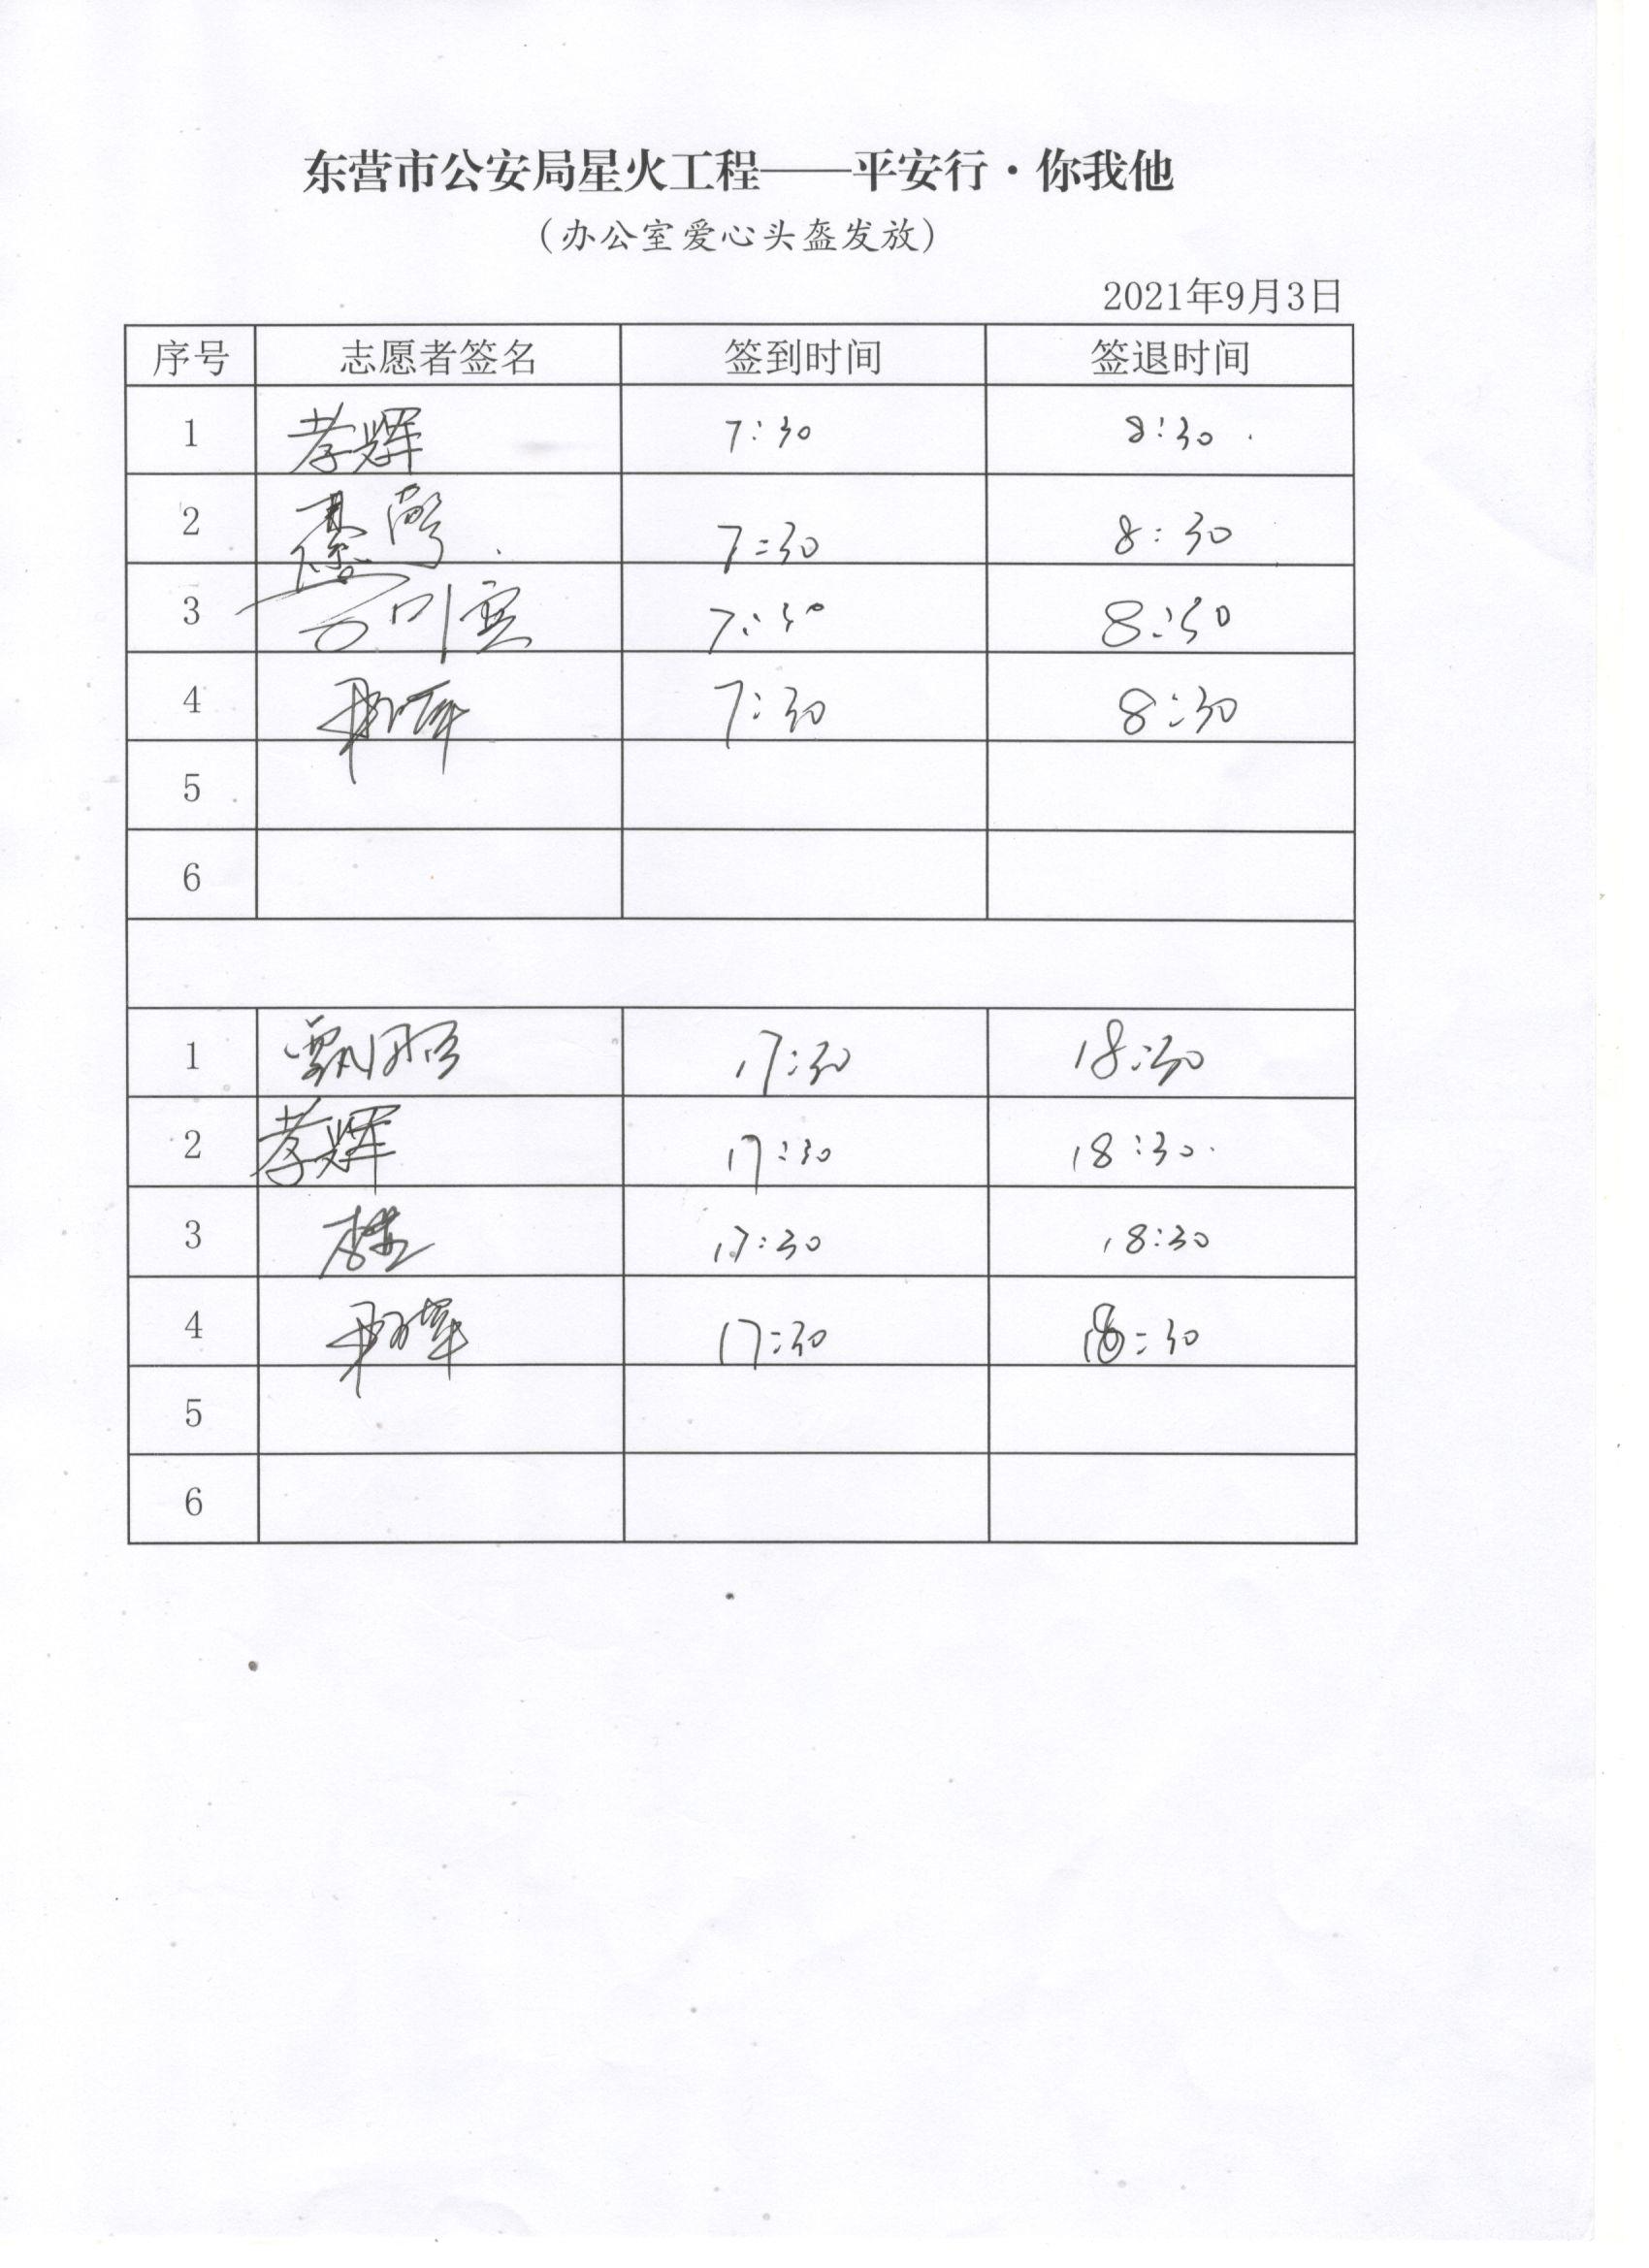 东营市公安局星火工程——平安行·你我他
（办公室爱心头盔发放）
2021年9月3日
序号 志愿者签名 签到时间 签退时间
1 孝辉 7:30 8:30
2 7:30 8:30
3 7:30 8:30
4 7:30 8:30
5
6
1 17:30 18:30
2 孝辉 17:30 18:30
3 17:30 18:30
4 17:30 18:30
5
6